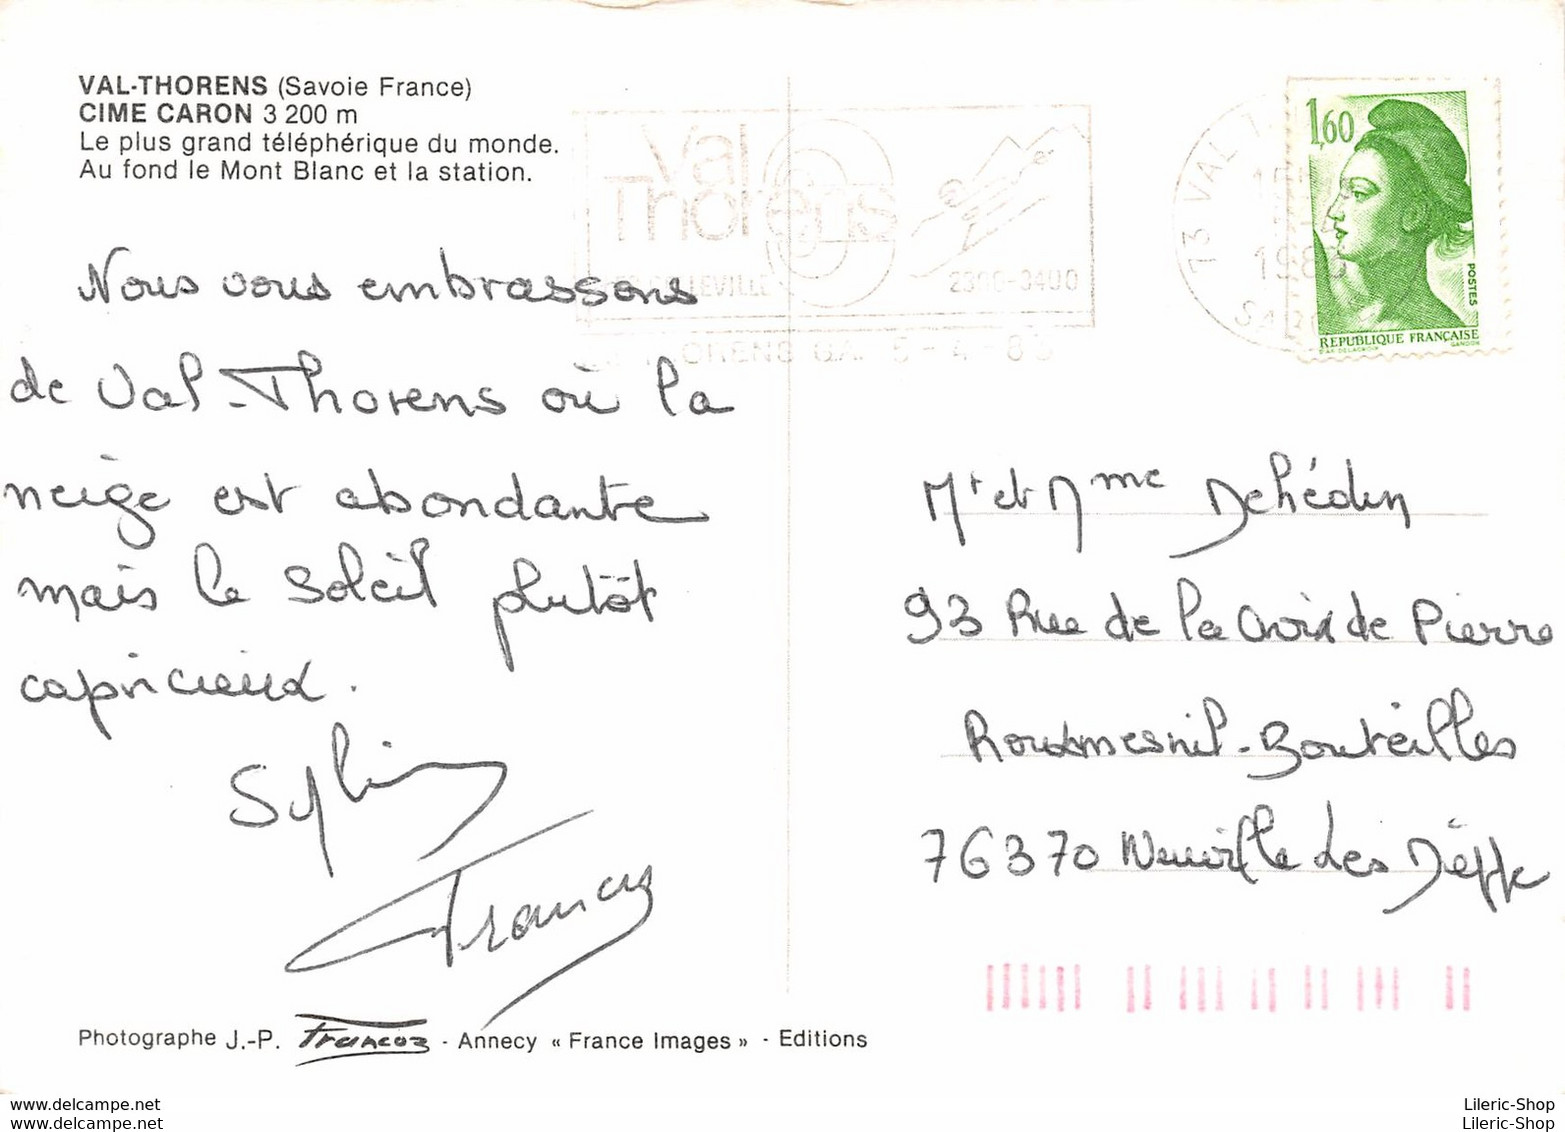 VAL-THORENS (Savoie France)
CIME CARON 3 200 m
Le plus grand téléphérique du monde.
Au fond le Mont Blanc et la station.
Val
Thorens
2300-3400
73 VAL T
1986
1,60
POSTES
REPUBLIQUE FRANÇAISE
D'AP. DELACROIX GANDON
Nous vous embrassons
de Val-Thorens où la
neige est abondante
mais le soleil plutôt
capricieux.
Sylvie
Francis
Mr et Mme Dehédin
93 Rue de la Croix de Pierre
Rouxmesnil-Bouteilles
76370 Neuville Les Dieppe
Photographe J.-P. Francoz - Annecy « France Images » - Editions
www.delcampe.net
www.delcampe.net
Lileric-Shop
Lileric-Shop